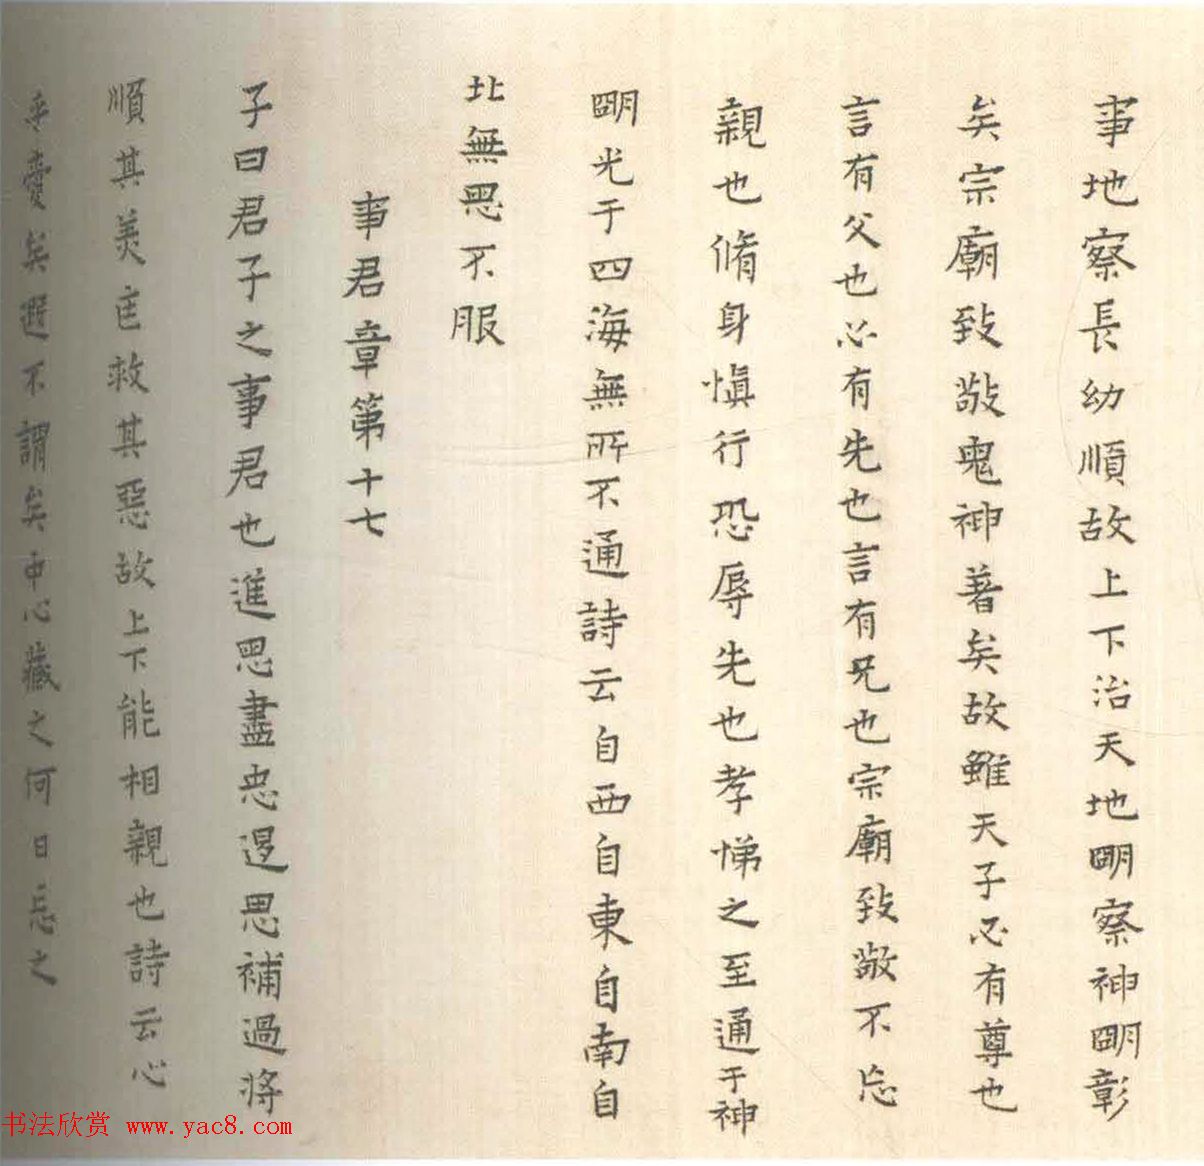 事地察長幼順故上下治天地朙察神朙彰
矣宗廟致敬鬼神著矣故雖天子必有尊也
言有父也必有先也言有兄也宗廟致敬不忘
親也脩身愼行恐辱先也孝悌之至通于神
朙光于四海無所不通詩云自西自東自南自
北無思不服
事君章第十七
子曰君子之事君也進思盡忠退思補過將
順其美匡救其惡故上下能相親也詩云心
乎愛矣遐不謂矣中心藏之何日忘之
书法欣赏 www.yac8.com